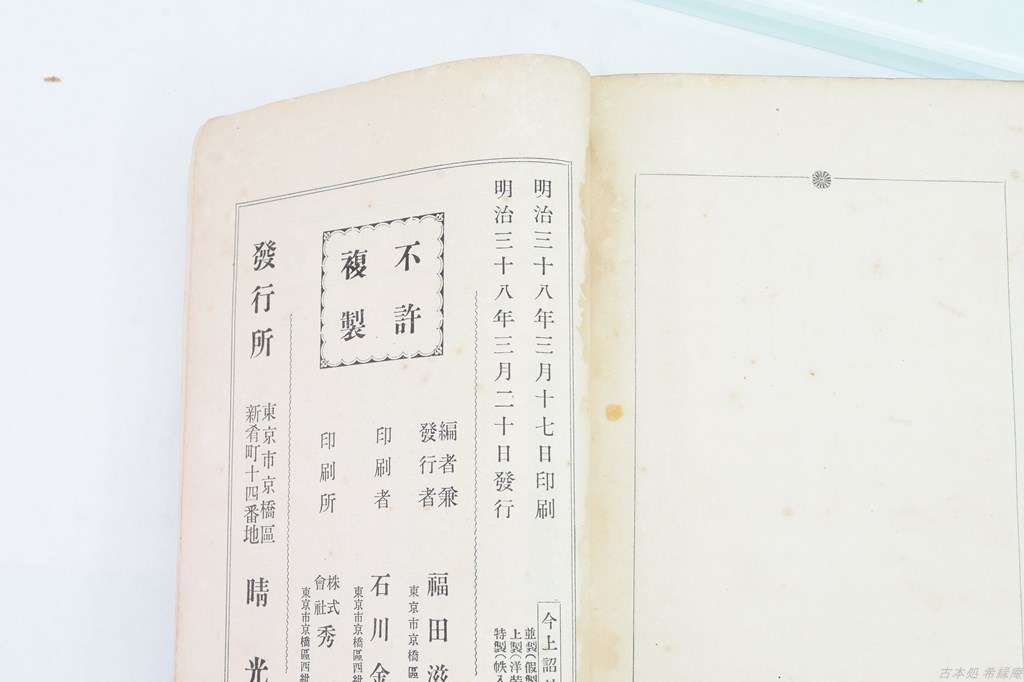 明治三十八年三月十七日印刷
明治三十八年三月二十日發行
今上詔
並製(假製
上製(洋裝
特製(帙入
不許
複製
編者兼
發行者
福田滋
東京市京橋區
印刷者
石川金
東京市京橋區西紺
印刷所
株式
會社
秀
東京市京橋區西紺
發行所
東京市京橋區
新肴町十四番地
晴光
古本処 希縁庵